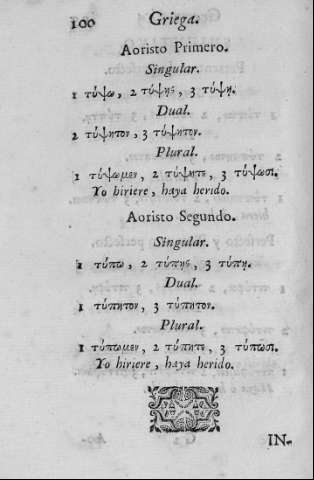 100 Griega.
Aoristo Primero.
Singular.
1 τύψω, 2 τύψης, 3 τύψη.
Dual.
2 τύψητον, 3 τύψητον.
Plural.
1 τύψωμεν, 2 τύψητε, 3 τύψωσι.
Yo hiriere, haya herido.
Aoristo Segundo.
Singular.
1 τύπω, 2 τύπης, 3 τύπη.
Dual.
1 τύπητον, 3 τύπητον.
Plural.
1 τύπωμεν, 2 τύπητε, 3 τύπωσι.
Yo hiriere, haya herido.
IN-